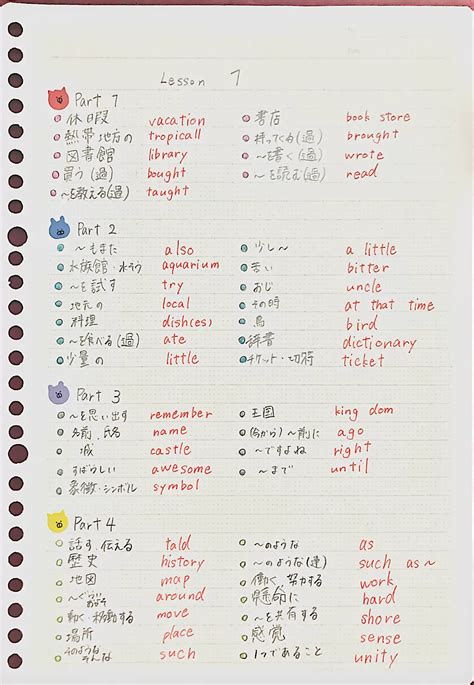 Lesson 1
Part 1
休日暇 vacation
熱帯地方の tropicall
図書館 library
買う(過) bought
~を教える(過) taught
書店 book store
持ってくる(過) brought
~を書く(過) wrote
~を読む(過) read
Part 2
~もまた also
水族館・水そう aquarium
~を試す try
地元の local
料理 dish(es)
~を食べる(過) ate
少量の little
少し~ a little
苦い bitter
おじ uncle
その時 at that time
鳥 bird
辞書 dictionary
チケット・切符 ticket
Part 3
~を思い出す remember
名前.氏名 name
城 castle
すばらしい awesome
象徴・シンボル symbol
王国 king dom
(今から)~前に ago
~ですよね right
~まで until
Part 4
話す.伝える tald
歴史 history
地図 map
~ぐらい around
動く・移動する move
場所 place
そのような such
そんな
~のような as
~のような(達) such as~
働く.努力する work
懸命に hard
~を共有する shore
感覚 sense
1つであること unity